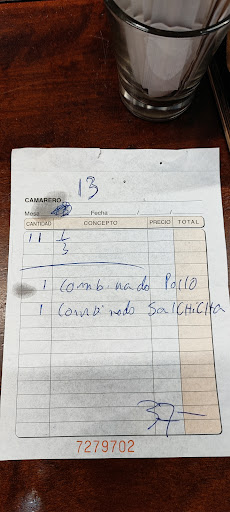 13
CAMARERO
Mesa Fecha / /
CANTIDAD CONCEPTO PRECIO TOTAL
11 1/3
1 Combinado Pollo
1 Combinado SalCHiCHa
37-
7279702